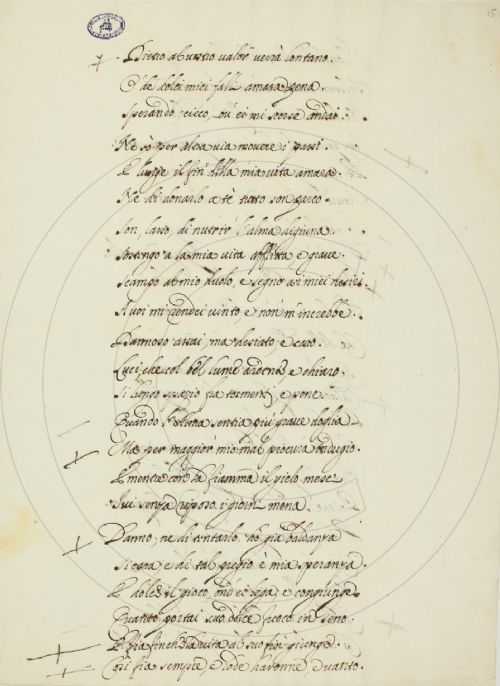 15
Dietro al vostro valor verrà lontano.
O' de dolci miei falli amara pena.
Sperando, cieco, ov' ei mi scorse andai.
Ne sò per altra via movere i passi.
E lunge il fin della mia vita amara.
Ne di donarlo a tè tutto son parco.
Son, lasso, di nutrir l'alma digiuna.
Sostengo a la mia vita afflitta e grave.
Scampo al mio duolo, e segno a i miei desiri.
A voi mi rendei vinto, e non m'increbbe.
Dannoso assai, ma desiato, e caro.
Luci, che col bel lume ardente, e chiaro.
Si lungo spazio fra tormenti, e pene.
Quando l'alma sentia più grave doglia
Ma per maggior mio mal procura indugio.
E mentre la fiamma il cielo mesce
Ivi senza riposo i giorni mena
Danno; ne di tentarlo hò già baldanza
Si cara e di tal pregio è mia speranza.
E dolce il gioco, ond' ei lega, e congiunge
Quanto portai suo dolce foco in seno.
E fia finch' la vita al suo fin giunge.
Così fia sempre, e lode havronne, e vanto.